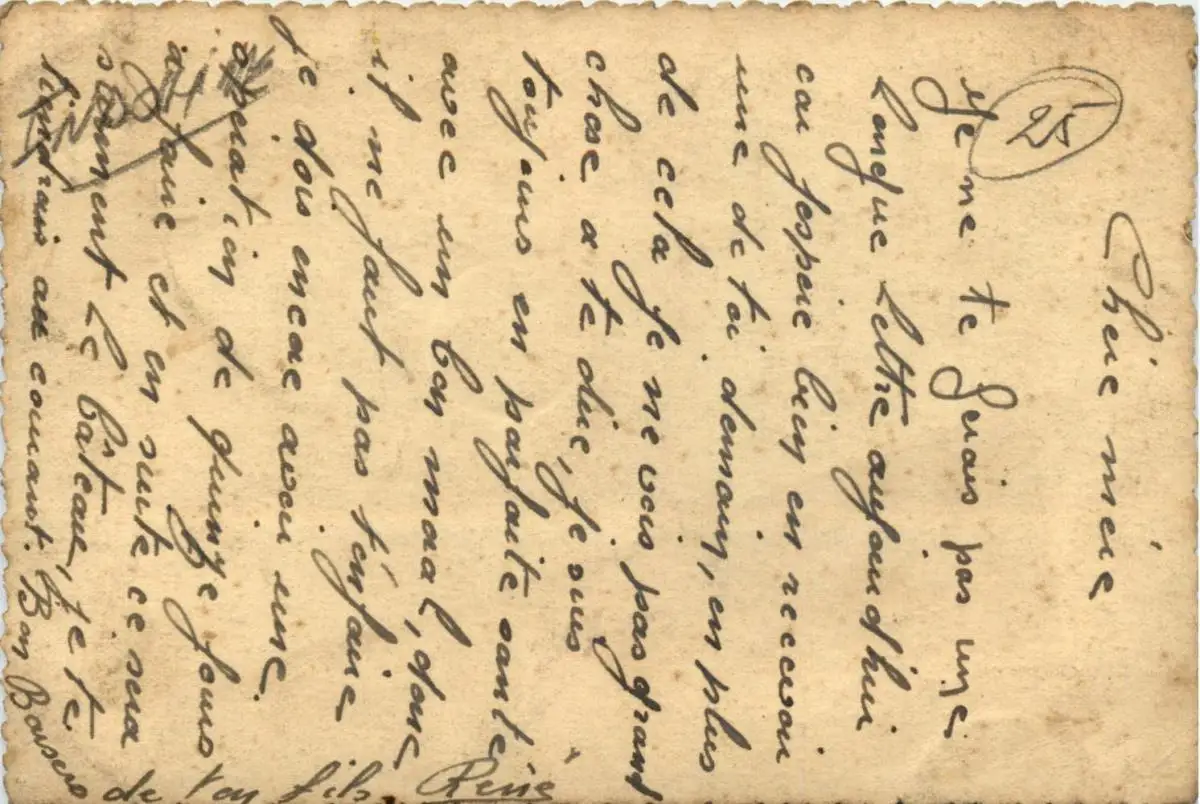 Chère mère
Je ne te ferais pas une
longue lettre aujourd'hui
car j'espère bien en recevoir
une de toi demain, en plus
de cela je ne vois pas grand
chose a te dire, je suis
toujours en parfaite santé
avec un bon moral, donc
il ne faut pas t'en faire
je dois encore avoir une
opération de quinze jours
à faire et en suite ce sera
surement le bâteau, je te
tiendrais au courant. Bon Baisers
de ton fils René